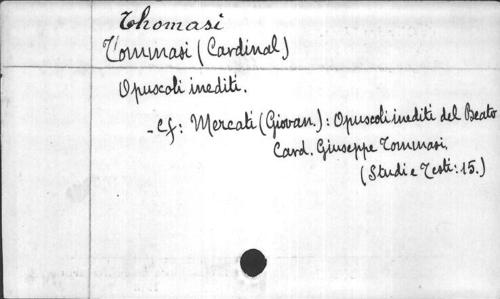 Thomasi
Tommasi (Cardinal)
Opuscoli inediti.
- Cf: Mercati (Giovan.): Opuscoli inediti del Beato
Card. Giuseppe Tommasi.
(Studi e Testi: 15.)